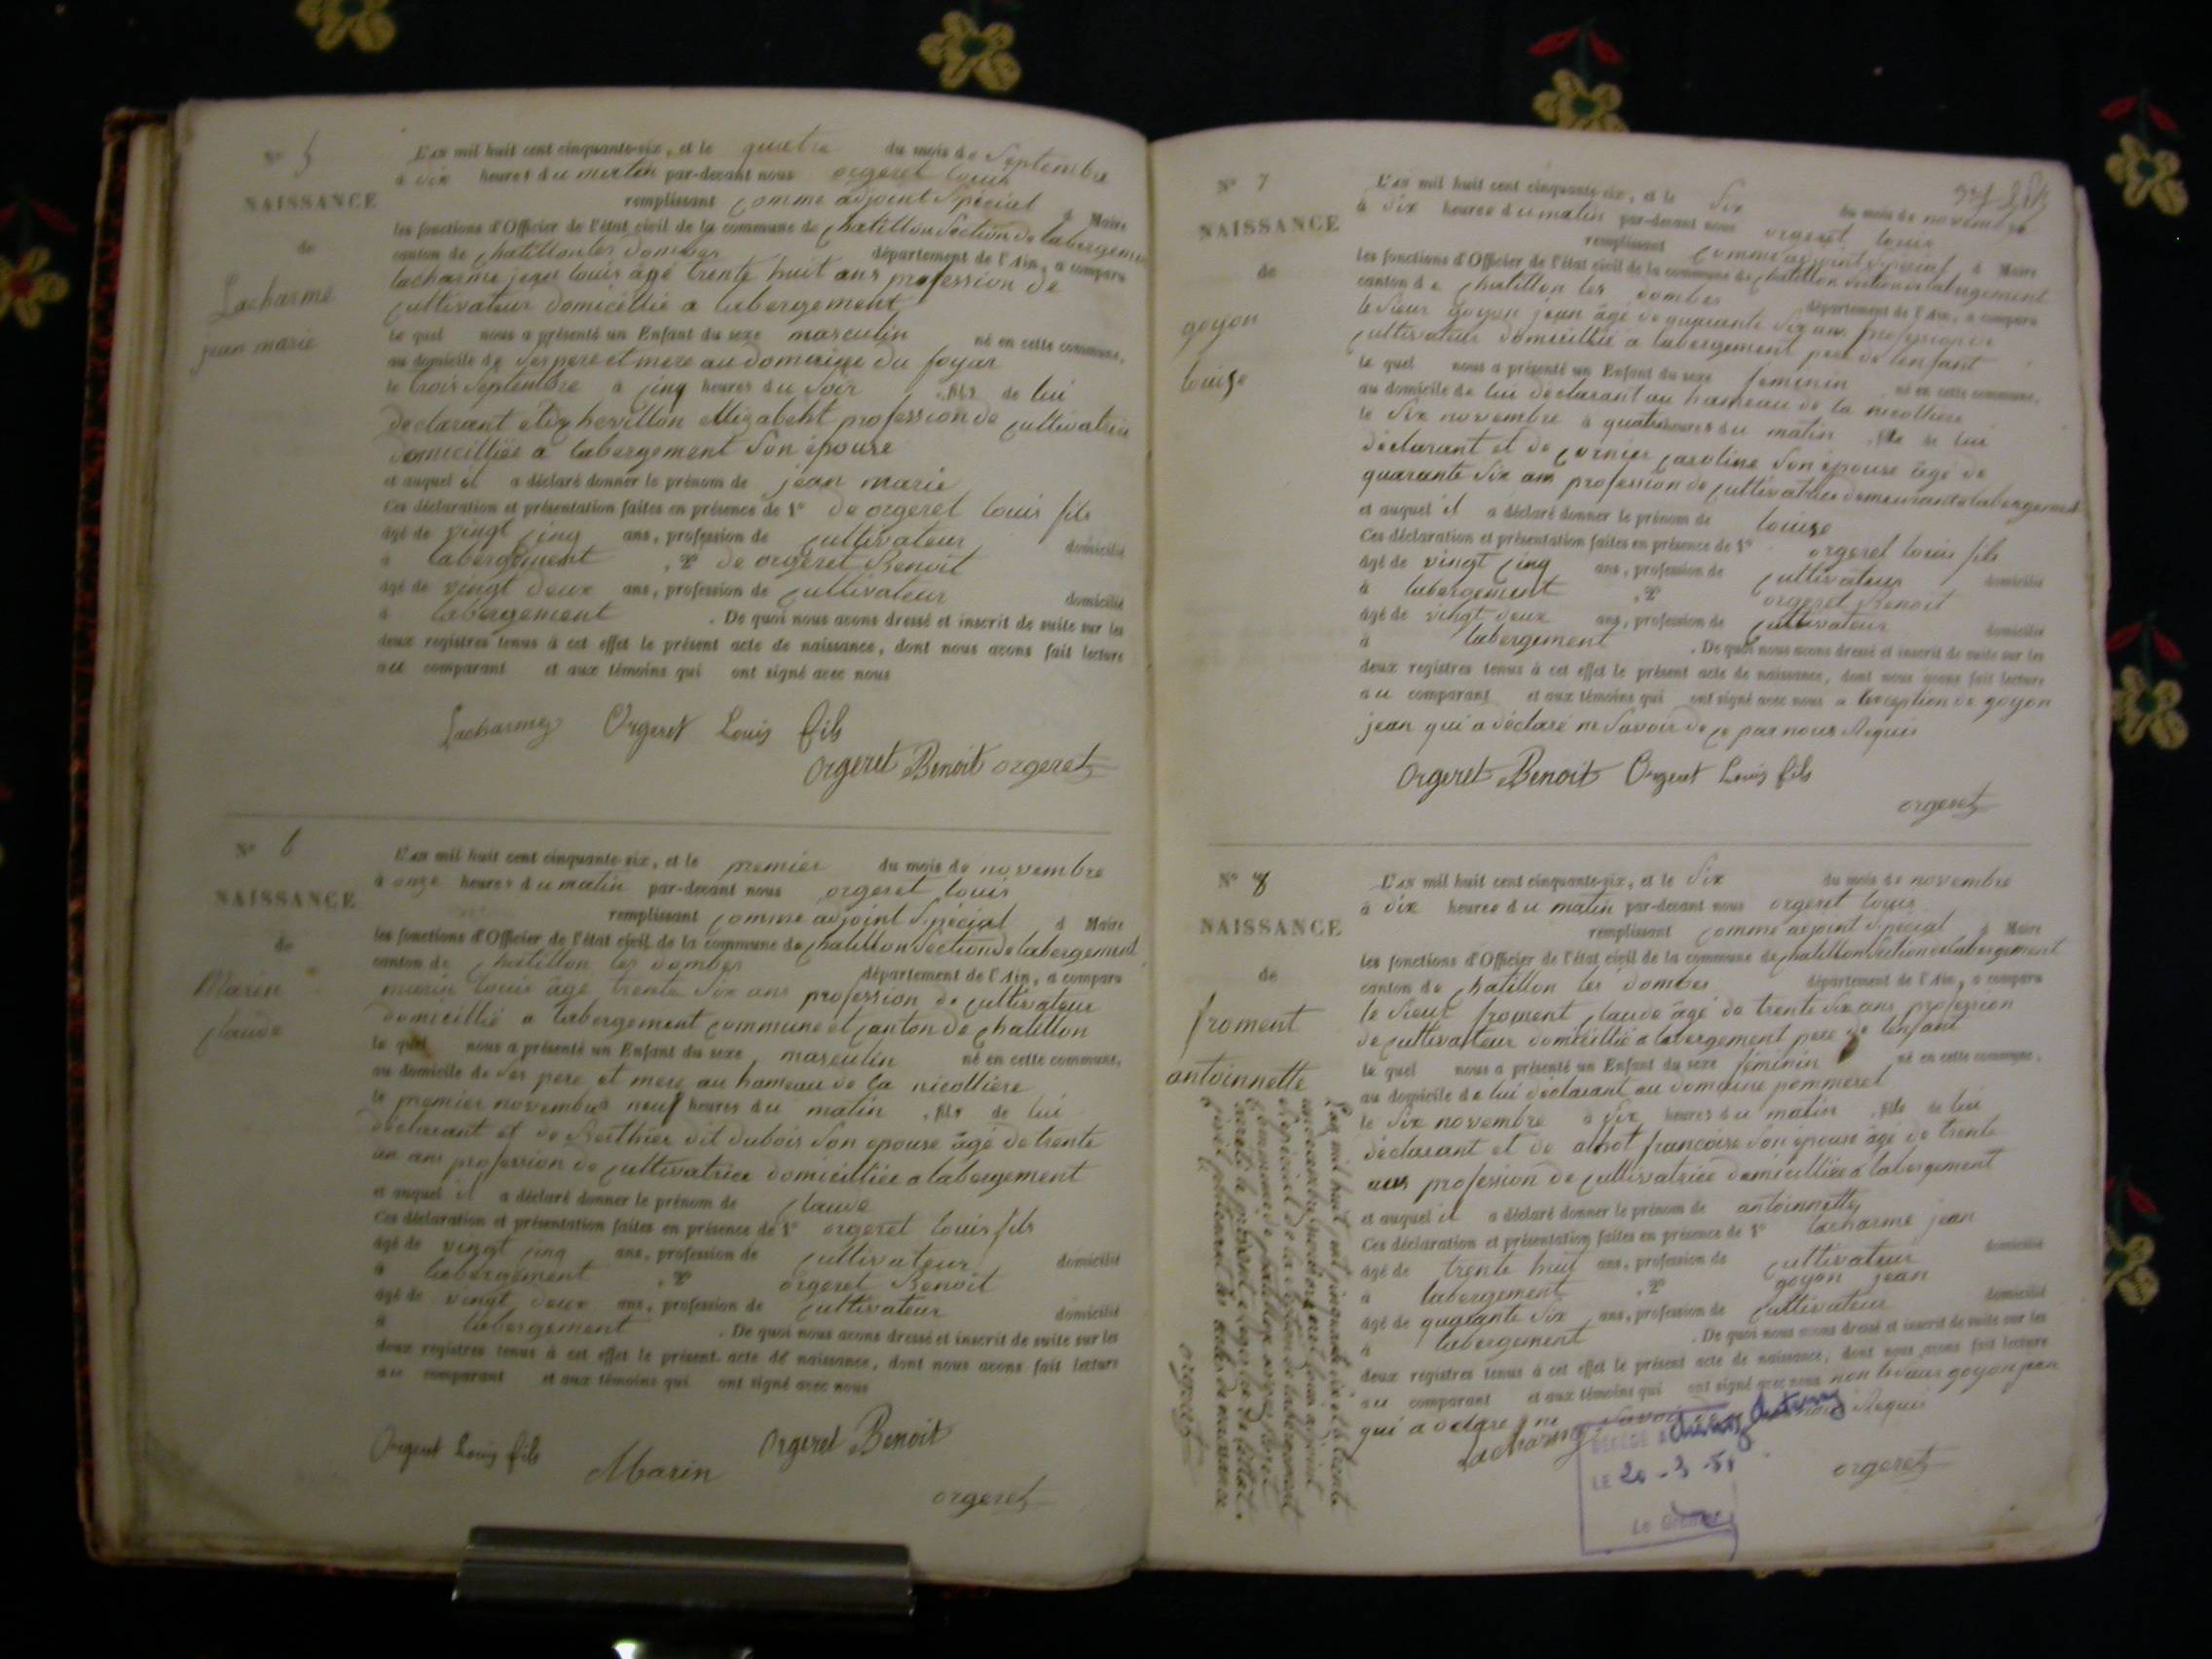 N° 5
NAISSANCE
de
Lacharme
jean marie
L'an mil huit cent cinquante-six, et le quatre du mois de Septembre
à dix heures du matin par-devant nous orgeret louis
remplissant comme adjoint Spécial à Maire
les fonctions d'Officier de l'état civil de la commune de chatillon Section de labergement
canton de chatillon les dombes département de l'Ain, a comparu
lacharme jean louis âgé trente huit ans profession de
cultivateur domicillié a labergement
le quel nous a présenté un Enfant du sexe masculin né en cette commune,
au domicile de Ses pere et mere au domaine du foyar
le trois Septembre à cinq heures du Soir , fils de lui
declarant et de chevillon ellizabeht profession de cultivatrice
domicilliée a labergement Son épouse
et auquel il a déclaré donner le prénom de jean marie
Ces déclaration et présentation faites en présence de 1° de orgeret louis fils
âgé de vingt cinq ans, profession de cultivateur domicilié
à labergement , 2° de orgeret Benoit
âgé de vingt deux ans, profession de cultivateur domicilié
à labergement . De quoi nous avons dressé et inscrit de suite sur les
deux registres tenus à cet effet le présent acte de naissance, dont nous avons fait lecture
au comparant et aux témoins qui ont signé avec nous
Lacharme Orgeret Louis fils
Orgeret Benoit orgeret
N° 6
NAISSANCE
de
Marin
claude
L'an mil huit cent cinquante-six, et le premier du mois de novembre
à onze heures du matin par-devant nous orgeret louis
remplissant comme adjoint Spécial à Maire
les fonctions d'Officier de l'état civil de la commune de chatillon Section de labergement
canton de chatillon les dombes département de l'Ain, a comparu
marin louis âgé trente Six ans profession de cultivateur
domicillié a labergement commune et canton de chatillon
le quel nous a présenté un Enfant du sexe masculin né en cette commune,
au domicile de Ses pere et mere au hameau de la nicolliere
le premier novembre à neuf heures du matin , fils de lui
declarant et de Berthier dit dubois Son epouse âgé de trente
un ans profession de cultivatrice domicilliée a labergement
et auquel il a déclaré donner le prénom de claude
Ces déclaration et présentation faites en présence de 1° orgeret louis fils
âgé de vingt cinq ans, profession de cultivateur domicilié
à labergement , 2° orgeret Benoit
âgé de vingt deux ans, profession de cultivateur domicilié
à labergement . De quoi nous avons dressé et inscrit de suite sur les
deux registres tenus à cet effet le présent acte de naissance, dont nous avons fait lecture
au comparant et aux témoins qui ont signé avec nous
Orgeret Louis fils Marin Orgeret Benoit
orgeret
N° 7
NAISSANCE
de
goyon
louise
L'an mil huit cent cinquante-six, et le Six du mois de novembre
à dix heures du matin par-devant nous orgeret louis
remplissant comme adjoint Spécial à Maire
les fonctions d'Officier de l'état civil de la commune de chatillon Section de labergement
canton de chatillon les dombes département de l'Ain, a comparu
le Sieur goyon jean âgé de quarante Six ans profession de
cultivateur domicillié a labergement pere de lenfant
le quel nous a présenté un Enfant du sexe féminin né en cette commune,
au domicile de lui déclarant au hameau de la nicolliere
le Six novembre à quatre heures du matin , fille de lui
déclarant et de cornier caroline Son épouse âgé de
quarante Six ans profession de cultivatrice demeurant a labergement
et auquel il a déclaré donner le prénom de louise
Ces déclaration et présentation faites en présence de 1° orgeret louis fils
âgé de vingt cinq ans, profession de cultivateur domicilié
à labergement , 2° orgeret Benoit
âgé de vingt deux ans, profession de cultivateur domicilié
à labergement . De quoi nous avons dressé et inscrit de suite sur les
deux registres tenus à cet effet le présent acte de naissance, dont nous avons fait lecture
au comparant et aux témoins qui ont signé avec nous a lexception de goyon
jean qui a déclaré ne Savoir de ce par nous Requis
Orgeret Benoit Orgeret Louis fils
orgeret
N° 8
NAISSANCE
de
froment
antoinnette
L'an mil huit cent cinquante-six, et le Six du mois de novembre
à dix heures du matin par-devant nous orgeret louis
remplissant comme adjoint Spécial à Maire
les fonctions d'Officier de l'état civil de la commune de chatillon Section de labergement
canton de chatillon les dombes département de l'Ain, a comparu
le Sieur froment claude âgé de trente Six ans profession
de cultivateur domicillié a labergement pere de lenfant
le quel nous a présenté un Enfant du sexe féminin né en cette commune,
au domicile de lui déclarant au domaine pommeret
le Six novembre à Six heures du matin , fille de lui
déclarant et de francoise Son épouse âgé de trente
ans profession de cultivatrice domicilliée a labergement
et auquel il a déclaré donner le prénom de antoinnette
Ces déclaration et présentation faites en présence de 1° lacharme jean
âgé de trente huit ans, profession de cultivateur domicilié
à labergement , 2° goyon jean
âgé de quarante Six ans, profession de cultivateur domicilié
à labergement . De quoi nous avons dressé et inscrit de suite sur les
deux registres tenus à cet effet le présent acte de naissance, dont nous avons fait lecture
au comparant et aux témoins qui ont signé avec nous non goyon jean
qui a déclaré ne Savoir nous Requis
Lacharme
orgeret
LE 20 - 3 - 51
Le Greffier
L'an mil huit cent cinquante Six et le trente
un decembre nous orgeret louis adjoint
Spécial de la Section de labergement
commune de chatillon avons clos et
arrêté le présent registre de l'état
civil contenant les actes de naissance
orgeret